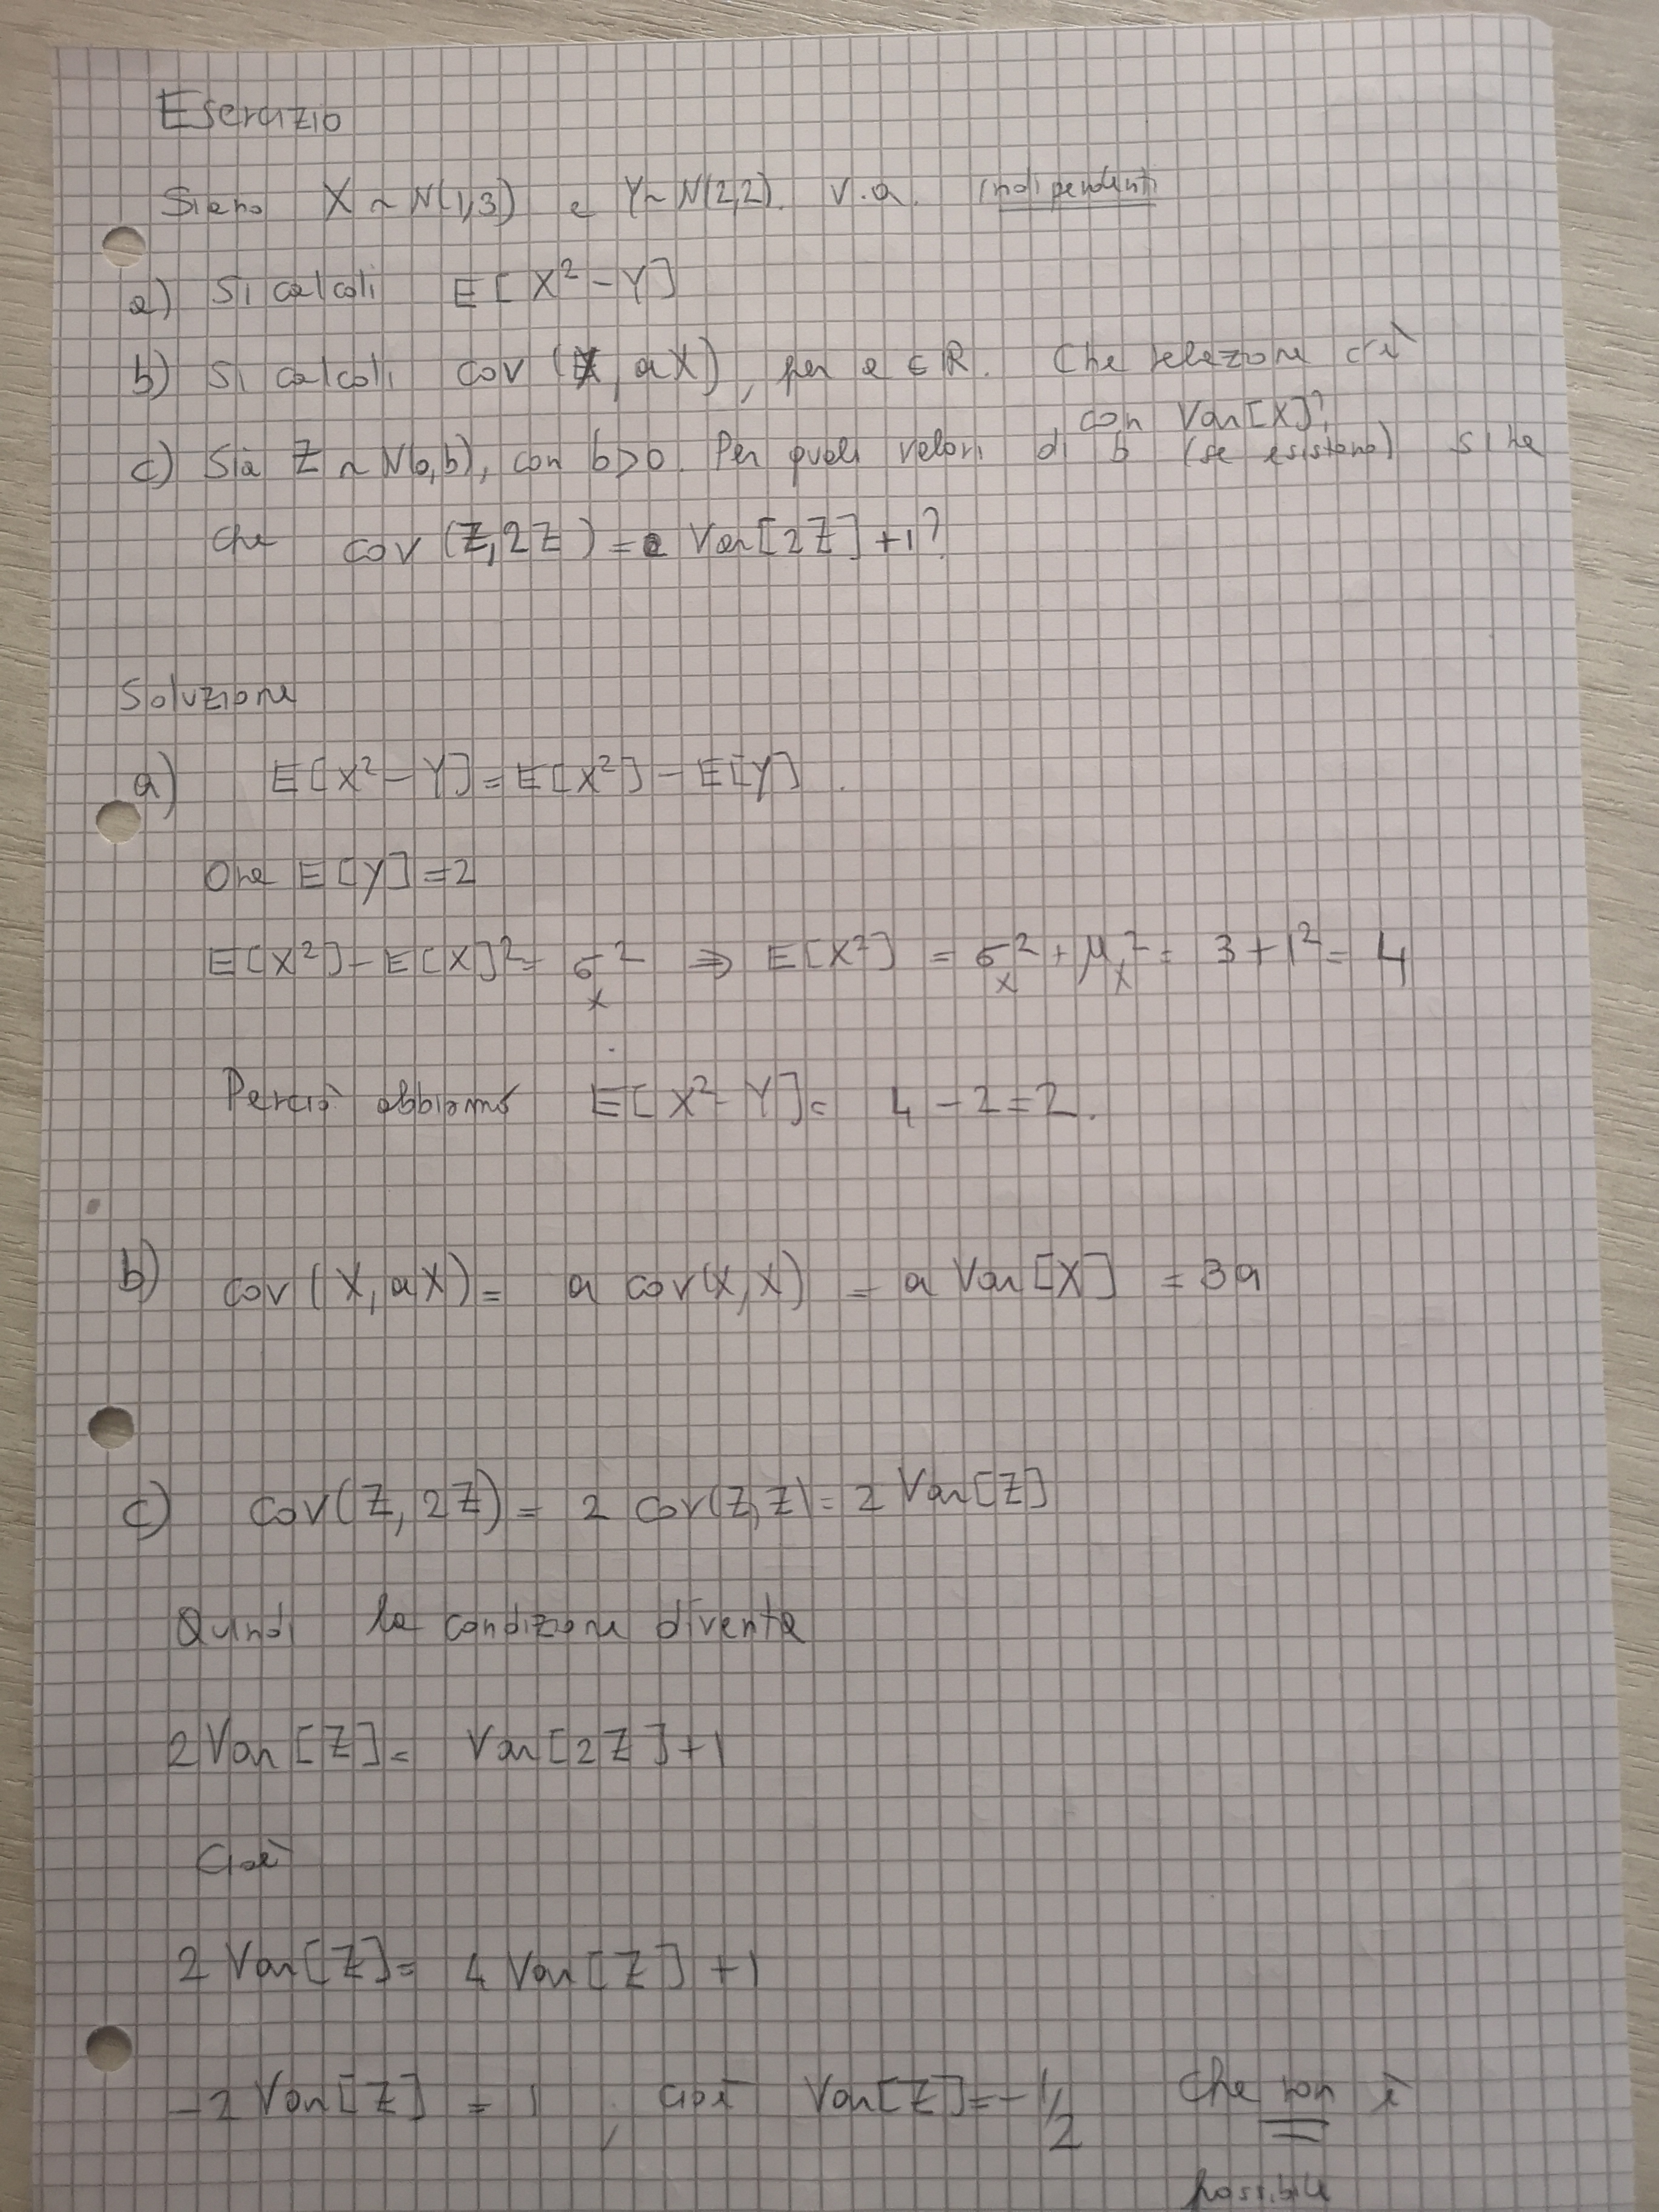 Esercizio
Siano X ~ N(1,3) e Y ~ N(2,2). v.a. indipendenti
a) Si calcoli E[X² - Y]
b) Si calcoli cov(X, aX), per a ∈ R. Che relazione c'è
con Var[X]?
c) Sia Z ~ N(0,b), con b>0. Per quali valori di b (se esistono) si ha
che cov(Z,2Z) = Var[2Z]+1?
Soluzione
a) E[X² - Y] = E[X²] - E[Y].
Ora E[Y] = 2
E[X²] - E[X]² = σ_X² ⇒ E[X²] = σ_X² + μ_X² = 3 + 1² = 4
Perciò abbiamo E[X² - Y] = 4 - 2 = 2.
b) cov(X, aX) = a cov(X,X) = a Var[X] = 3a
c) cov(Z, 2Z) = 2 cov(Z,Z) = 2 Var[Z]
Quindi la condizione diventa
2 Var[Z] = Var[2Z] + 1
Cioè
2 Var[Z] = 4 Var[Z] + 1
-2 Var[Z] = 1, cioè Var[Z] = -1/2 che non è
possibile